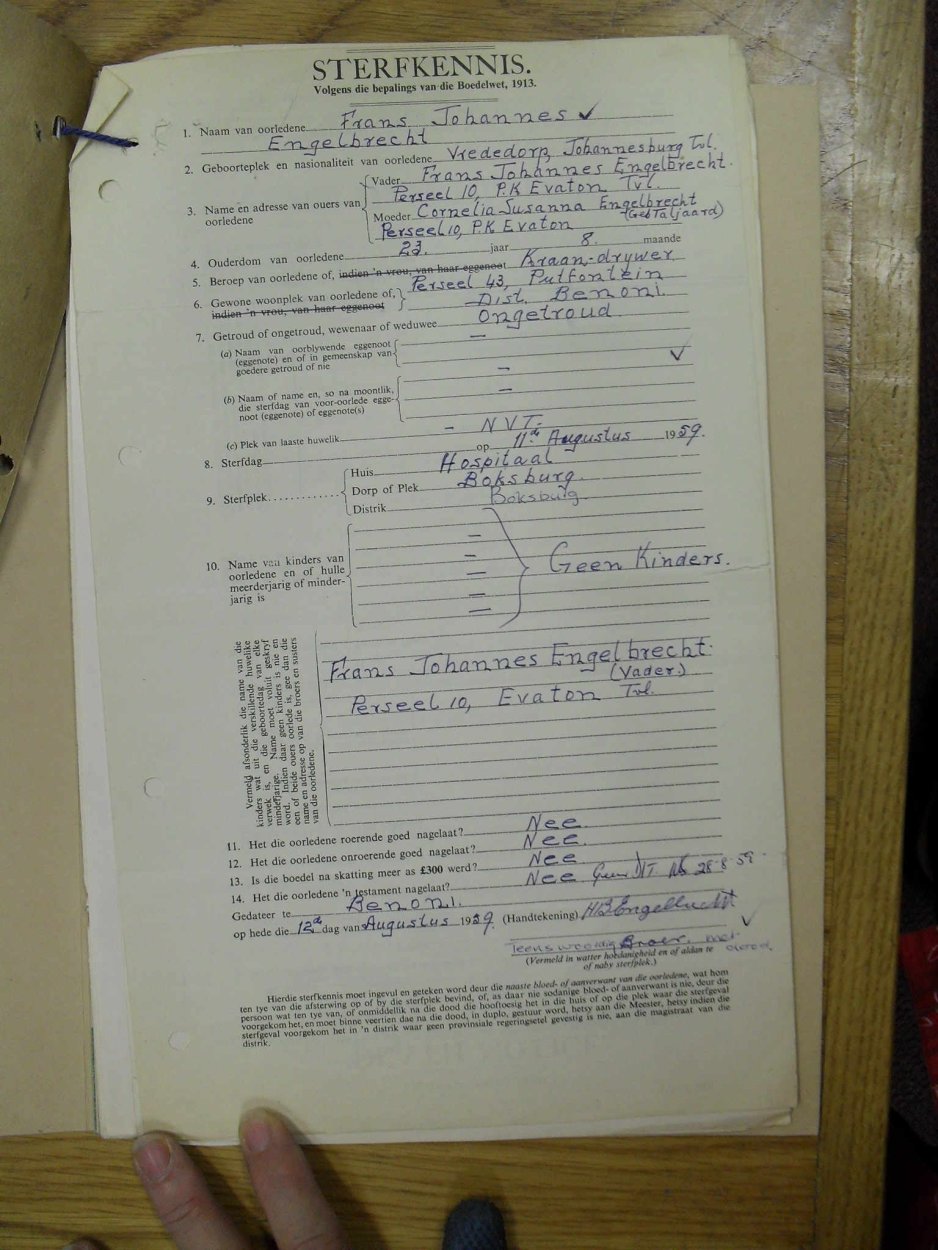 STERFKENNIS.
Volgens die bepalings van die Boedelwet, 1913.
1. Naam van oorledene Frans Johannes ✓
Engelbrecht
2. Geboorteplek en nasionaliteit van oorledene Vrededorp, Johannesburg Tvl.
3. Name en adresse van ouers van oorledene
Vader Frans Johannes Engelbrecht.
Perseel 10, P.K Evaton Tvl.
Moeder Cornelia Susanna Engelbrecht
(Geb Taljaard)
Perseel 10, P.K Evaton
4. Ouderdom van oorledene 23. jaar 8. maande
5. Beroep van oorledene of, indien 'n vrou, van haar eggenoot Kraan-drywer
6. Gewone woonplek van oorledene of, Perseel 43, Putfontein
indien 'n vrou, van haar eggenoot Dist. Benoni.
7. Getroud of ongetroud, wewenaar of weduwee Ongetroud
(a) Naam van oorblywende eggenoot —
(eggenote) en of in gemeenskap van ✓
goedere getroud of nie
—
(b) Naam of name en, so na moontlik, —
die sterfdag van voor-oorlede egge-
noot (eggenote) of eggenote(s)
(c) Plek van laaste huwelik — NVT.
8. Sterfdag op 11de Augustus 1959.
9. Sterfplek
Huis Hospitaal
Dorp of Plek Boksburg.
Distrik Boksburg
10. Name van kinders van
oorledene en of hulle
meerderjarig of minder-
jarig is
Geen Kinders.
Vermeld afsonderlik die name van die
kinders wat uit die verskillende huwelike
verwek is, en die geboortedag van elke
minderjarige. Name moet voluit geskryf
word. Indien daar geen kinders is nie en
een of beide ouers oorlede is, gee dan die
name en adresse op van die broers en susters
van die oorledene.
Frans Johannes Engelbrecht.
(Vader)
Perseel 10, Evaton Tvl.
11. Het die oorledene roerende goed nagelaat? Nee
12. Het die oorledene onroerende goed nagelaat? Nee
13. Is die boedel na skatting meer as £300 werd? Nee
14. Het die oorledene 'n testament nagelaat? Nee 28-8-59
Gedateer te Benoni.
op hede die 12de dag van Augustus 1959. (Handtekening) Engelbrecht
Teenswoordig Broer. met dood. ✓
(Vermeld in watter hoedanigheid en of aldan te
of naby sterfplek.)
Hierdie sterfkennis moet ingevul en geteken word deur die naaste bloed- of aanverwant van die oorledene, wat hom
ten tye van die afsterwing op of by die sterfplek bevind, of, as daar nie sodanige bloed- of aanverwant is nie, deur die
persoon wat ten tye van, of onmiddellik na die dood die hooftoesig het in die huis of op die plek waar die sterfgeval
voorgekom het, en moet binne veertien dae na die dood, in duplo, gestuur word, hetsy aan die Meester, hetsy indien die
sterfgeval voorgekom het in 'n distrik waar geen provinsiale regeringsetel gevestig is nie, aan die magistraat van die
distrik.